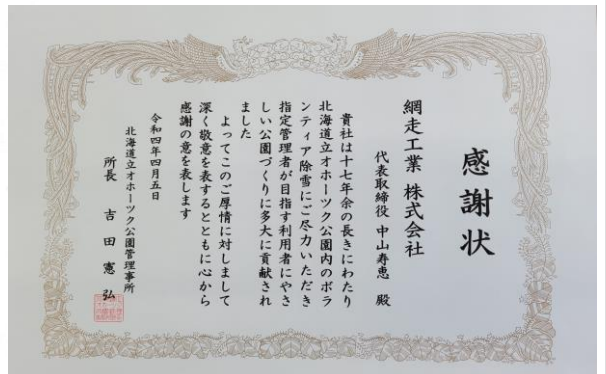 感謝状
網走工業 株式会社
代表取締役 中山寿恵 殿
貴社は十七年余の長きにわたり
北海道立オホーツク公園内のボラ
ンティア除雪にご尽力いただき
指定管理者が目指す利用者にやさ
しい公園づくりに多大に貢献され
ました
よってこのご厚情に対しまして
深く敬意を表するとともに心から
感謝の意を表します
令和四年四月五日
北海道立オホーツク公園管理事務所
所長 吉田憲弘